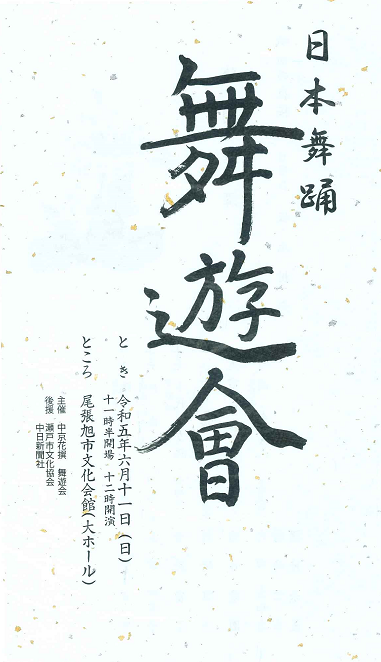 日本舞踊
舞遊會
とき　令和五年六月十一日（日）
十一時半開場　十二時開演
ところ　尾張旭市文化会館（大ホール）
主催　中京花撰　舞遊会
後援　瀬戸市文化協会
中日新聞社